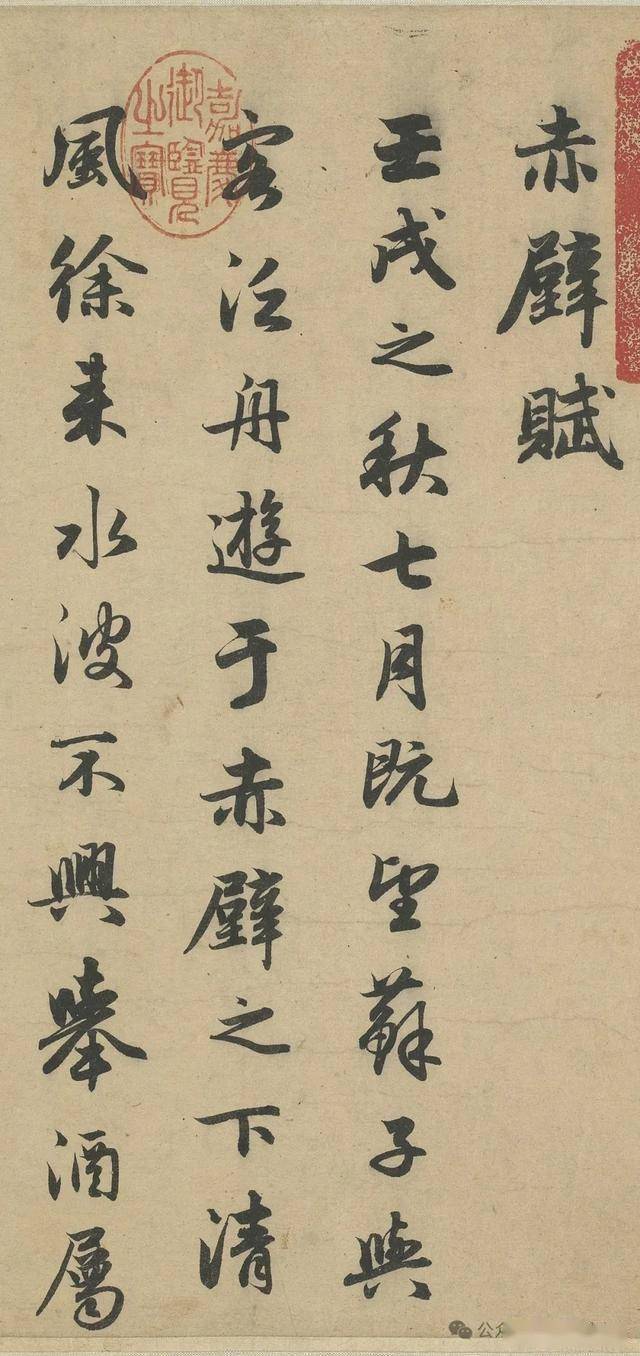 赤壁賦
壬戌之秋七月既望蘇子與
客泛舟遊于赤壁之下清
風徐来水波不興舉酒屬
嘉慶
御覽
之寶
公众